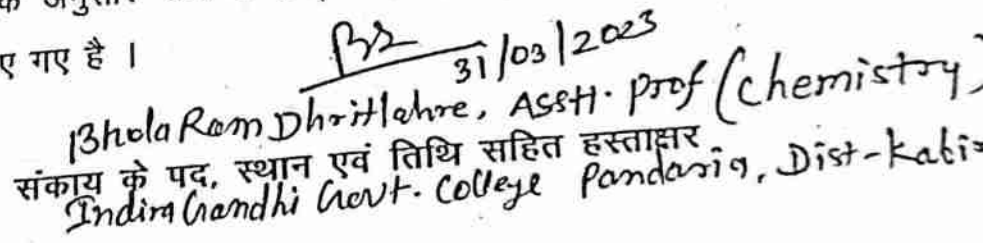 के अनुसार
ए गए है ।
31/03/2023
Bhola Ram Dhritlahre, Asstt. Prof (Chemistry)
संकाय के पद, स्थान एवं तिथि सहित हस्ताक्षर
Indira Gandhi Govt. College Pandaria, Dist-Kabi